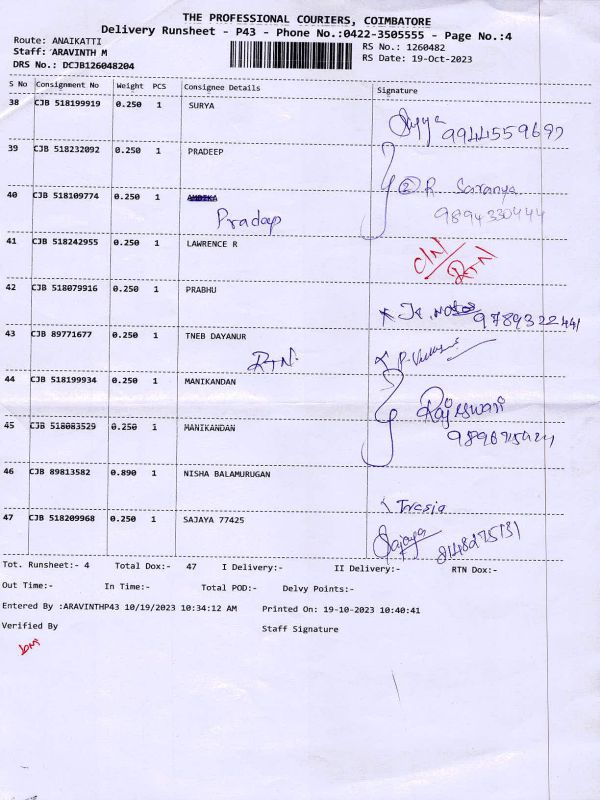 THE PROFESSIONAL COURIERS, COIMBATORE
Delivery Runsheet - P43 - Phone No.:0422-3505555 - Page No.:4
Route: ANAIKATTI
RS No.: 1260482
Staff: ARAVINTH M
RS Date: 19-Oct-2023
DRS No.: DCJB126048204
S No Consignment No Weight PCS Consignee Details Signature
38 CJB 518199919 0.250 1 SURYA
9944559697
39 CJB 518232092 0.250 1 PRADEEP
40 CJB 518109774 0.250 1
② R Saranya
Pradap
9894330444
41 CJB 518242955 0.250 1 LAWRENCE R
C/N/RTN
42 CJB 518079916 0.250 1 PRABHU
9789322441
43 CJB 89771677 0.250 1 TNEB DAYANUR
RTN.
44 CJB 518199934 0.250 1 MANIKANDAN
Rajeswari
45 CJB 518083529 0.250 1 MANIKANDAN
46 CJB 89813582 0.890 1 NISHA BALAMURUGAN
Tresia
47 CJB 518209968 0.250 1 SAJAYA 77425
Sajaya 8148275131
Tot. Runsheet:- 4 Total Dox:- 47 I Delivery:- II Delivery:- RTN Dox:-
Out Time:- In Time:- Total POD:- Delvy Points:-
Entered By :ARAVINTHP43 10/19/2023 10:34:12 AM Printed On: 19-10-2023 10:40:41
Verified By Staff Signature